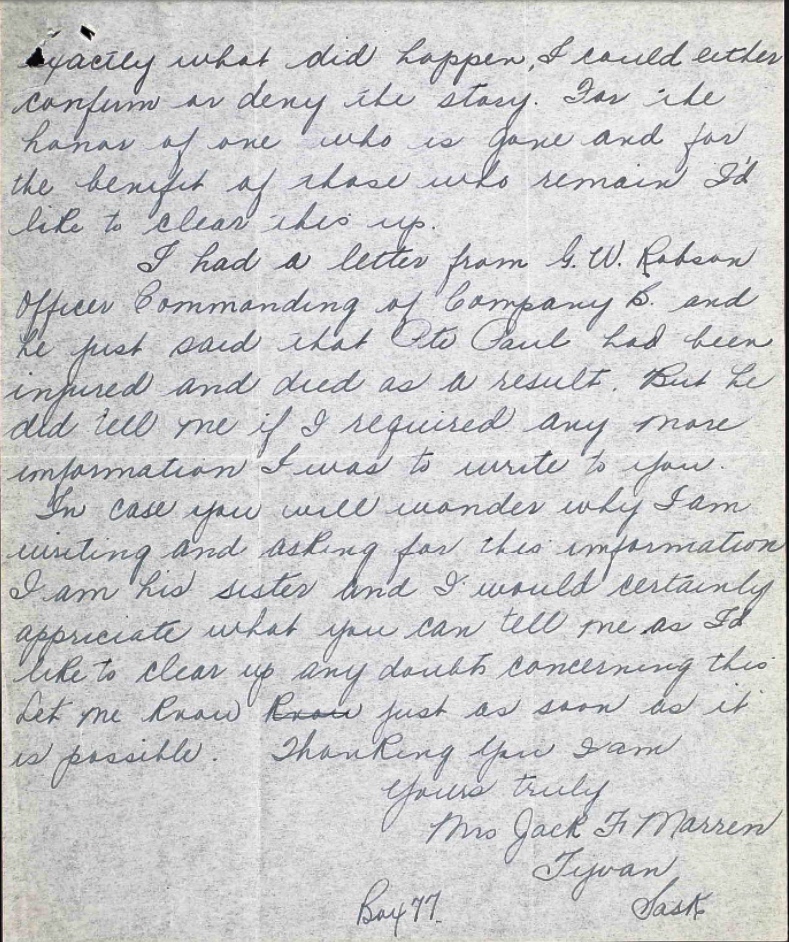 exactly what did happen, I could either
confirm or deny the story. For the
honor of one who is gone and for
the benefit of those who remain I'd
like to clear this up.
I had a letter from G. W. Robson
Officer Commanding of Company B. and
he just said that Pte Paul had been
injured and died as a result. But he
did tell me if I required any more
information I was to write to you.
In case you will wonder why I am
writing and asking for this information
I am his sister and I would certainly
appriciate what you can tell me as I'd
like to clear up any doubts concerning this
Let me know know just as soon as it
is possible. Thanking you I am
Yours truly
Mrs Jack F. Marren
Tyvan
Box 77. Sask